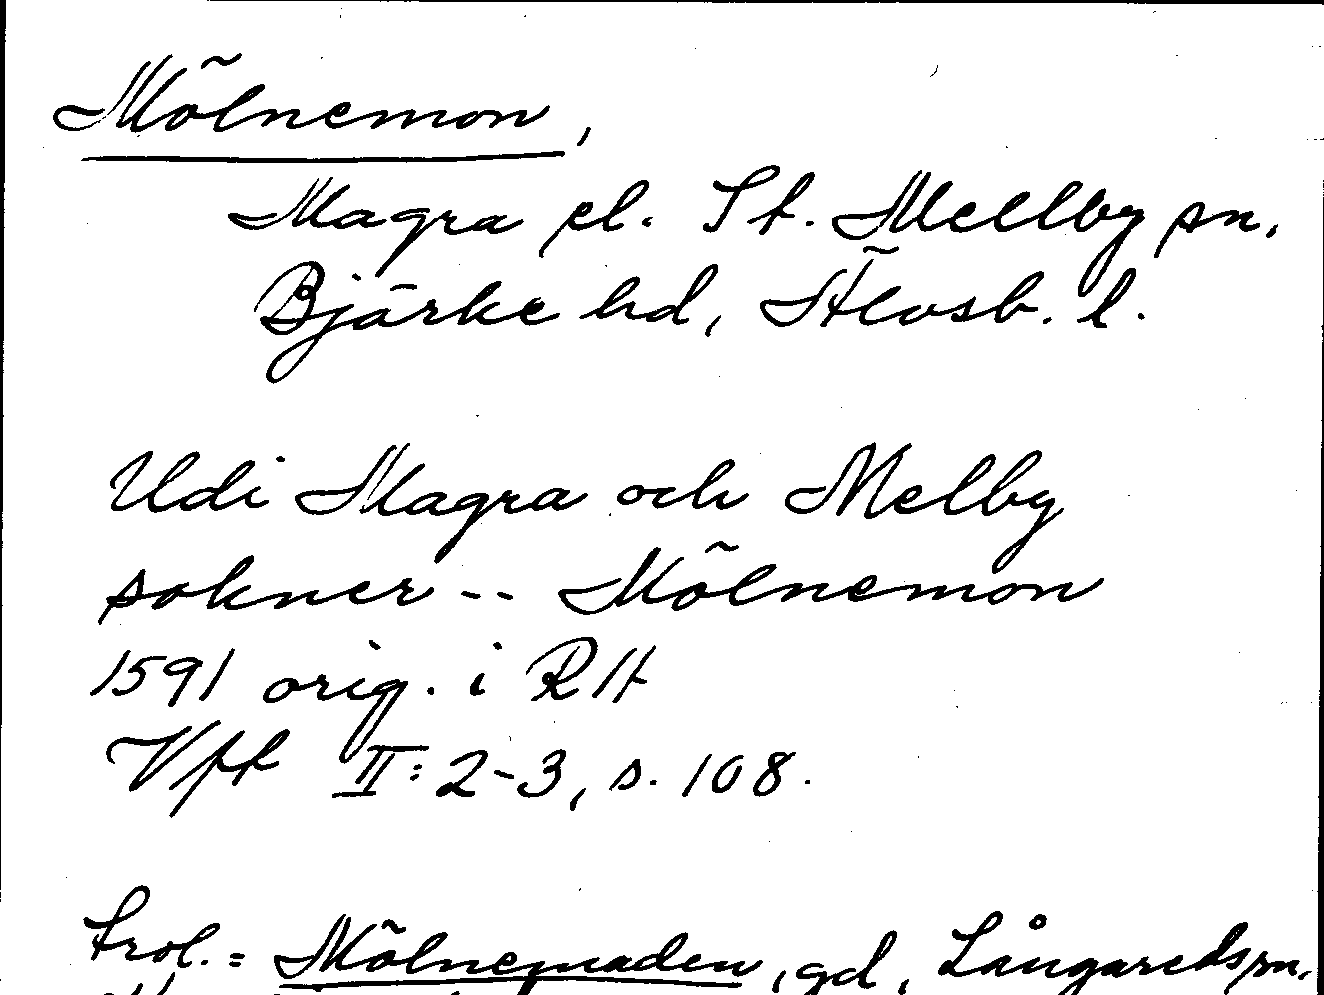 Mölnemon,
Magra el. St. Mellby sn,
Bjärke hd, Älvsb. l.
Udi Magra och Melby
sokner -- Mölnemon
1591 orig. i RH
Vft II: 2-3, s. 108.
Trol. = Mölnemaden, gd, Långareds sn,